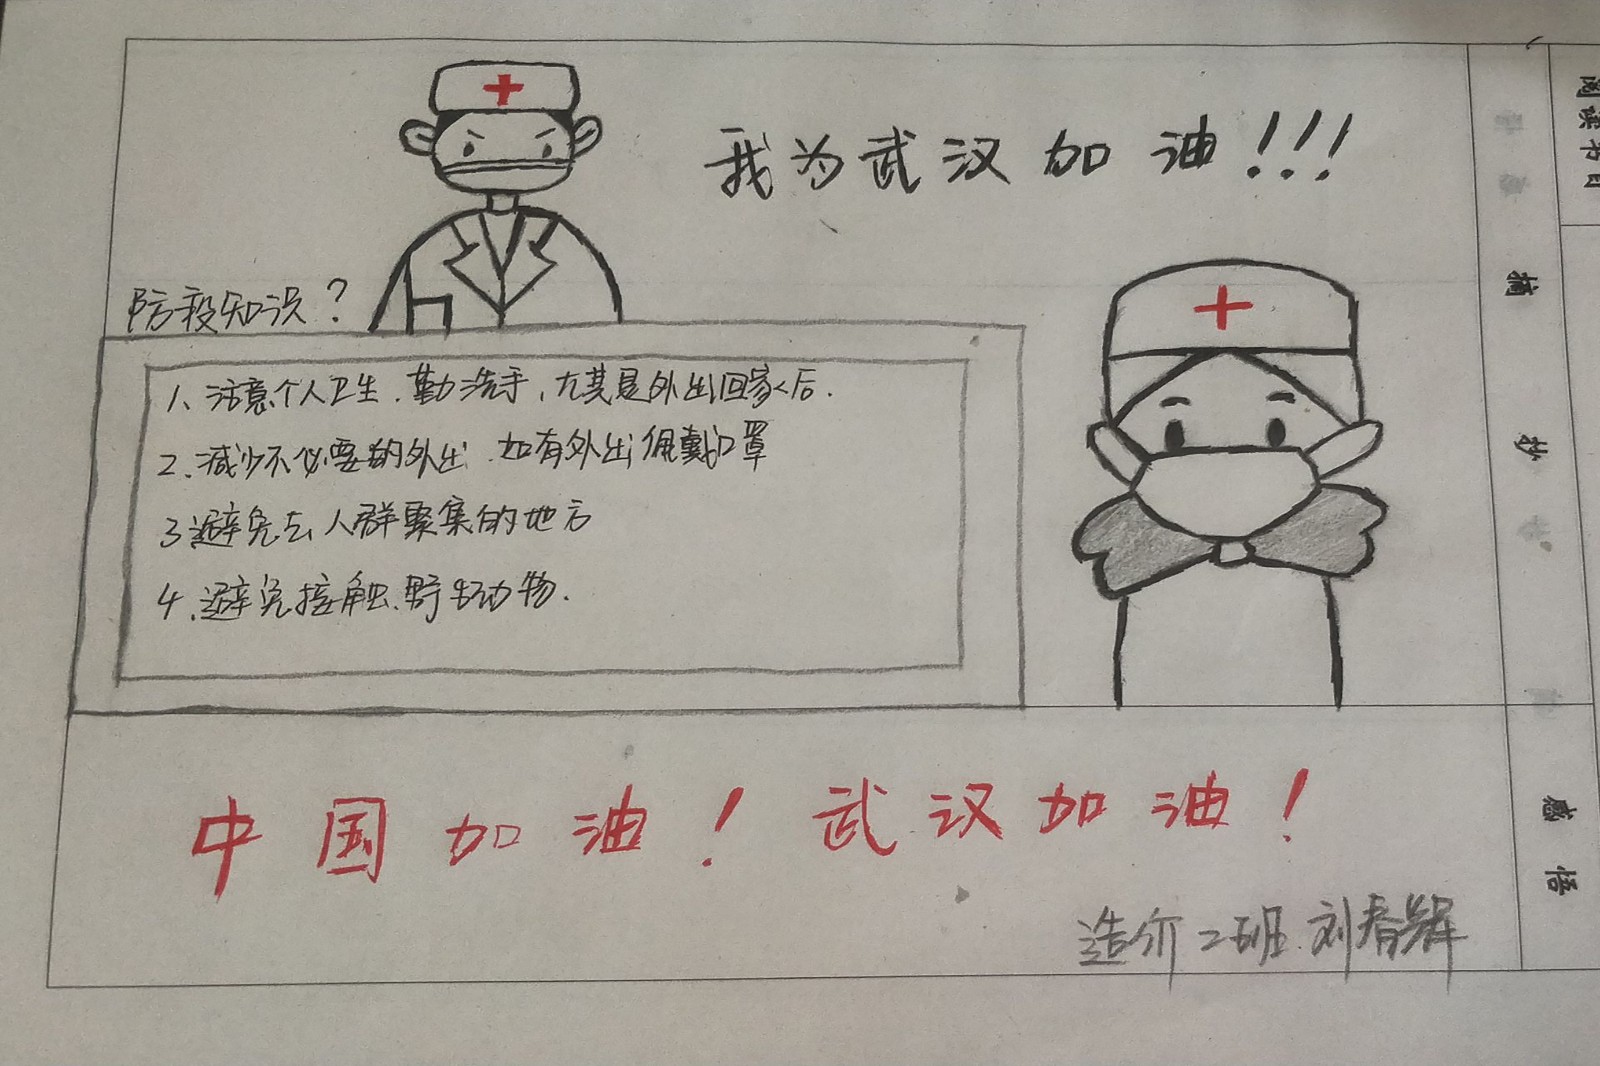 我为武汉加油!!!
防疫知识?
1、注意个人卫生.勤洗手,尤其是外出回家后.
2.减少不必要的外出.如有外出佩戴口罩
3避免去人群聚集的地方
4.避免接触野生动物.
中国加油!武汉加油!
造价二班.刘春辉
阅读书目
摘抄
感悟